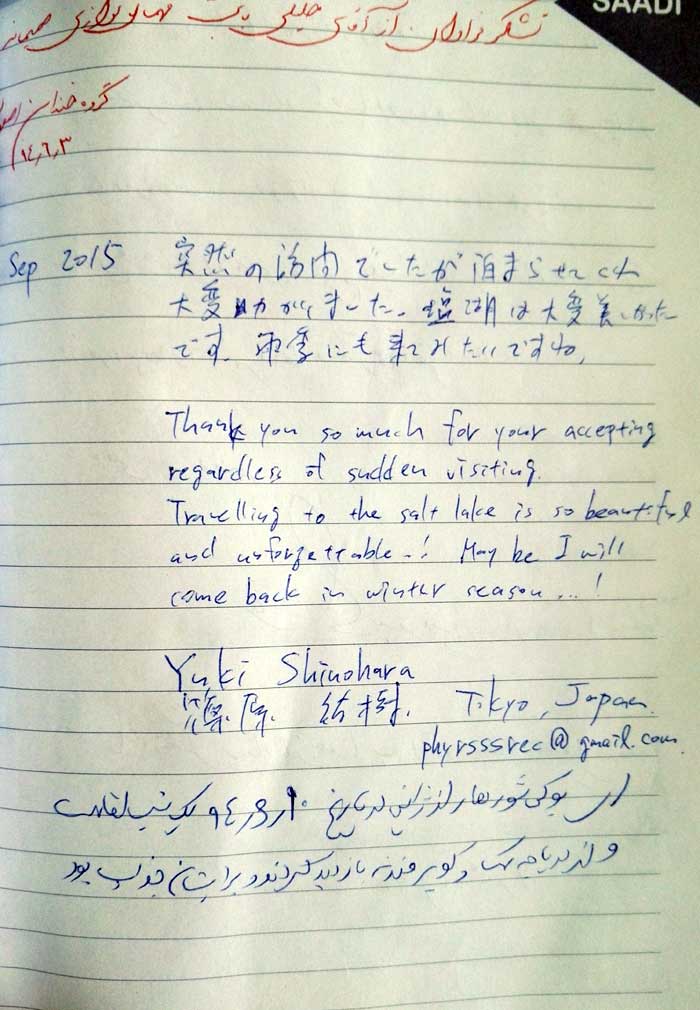 SAADI
تشکر فراوان از آقای جلیلی
گروه خندان
۱۴٫۶٫۳
Sep 2015
突然の訪問でしたが泊まらせてくれ
大変助かりました。塩湖は大変美しかった
です。雨季にも来てみたいですね。
Thank you so much for your accepting
regardless of sudden visiting.
Travelling to the salt lake is so beautiful
and unforgettable..! May be I will
come back in winter season...!
Yuki Shinohara
篠原 結樹. Tokyo, Japan.
phyrsssrec@gmail.com
یوکی از ژاپن در تاریخ یک شب اقامت
و از دریاچه نمک و کویر بازدید کردند و برایشان جذاب بود